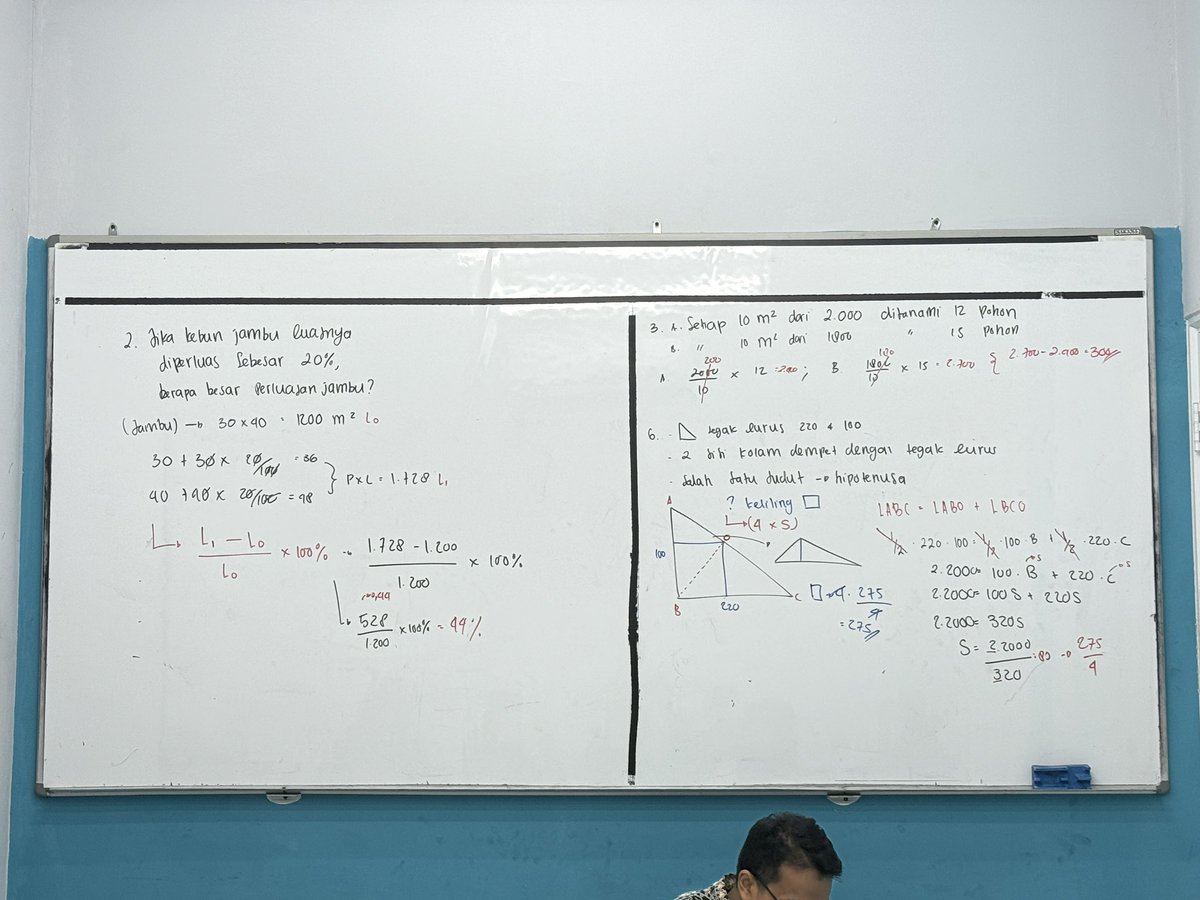 2. Jika kebun jambu luasnya
diperluas sebesar 20%,
berapa besar perluasan jambu?
(Jambu) → 30 x 40 = 1200 m² L₀
30 + 30 x 20/100 = 36
40 + 40 x 20/100 = 48
} P x L = 1.728 L₁
L₁ - L₀ / L₀ x 100% → 1.728 - 1.200 / 1.200 x 100%
0,44
528 / 1.200 x 100% = 44%
3. A. Setiap 10 m² dari 2.000 ditanami 12 pohon
B. " 10 m² dari 1800 " 15 pohon
A. 2000 / 10 x 12 = ; B. 1800 / 10 x 15 = 2.700 { 2.700 - 2.400 = 300
200
180
6. - tegak lurus 220 & 100
- 2 sisi kolam dempet dengan tegak lurus
- salah satu sudut → hipotenusa
? keliling □
(4 x S)
A
100
B
220
C
O
□ → 4 . 275 / 4
= 275
LABC = LABO + LBCO
1/2 . 220 . 100 = 1/2 . 100 . B + 1/2 . 220 . C
2.2000 = 100 . B + 220 . C
2.2000 = 100S + 220S
2.2000 = 320S
S = 2.2000 / 320 → 275 / 4